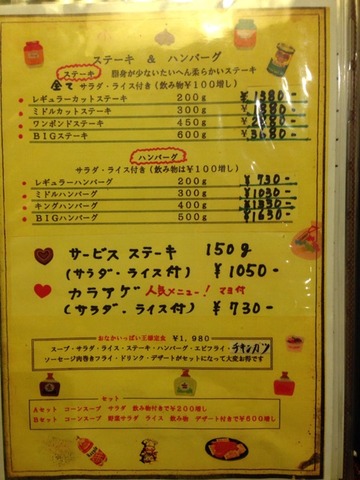 ステーキ & ハンバーグ
ステーキ 脂身が少ないたいへん柔らかいステーキ
全て サラダ・ライス付き(飲み物¥100増し)
レギュラーカットステーキ 200g ¥1380-
ミドルカットステーキ 300g ¥1880-
ワンポンドステーキ 450g
BIGステーキ 600g ¥3680-
ハンバーグ
サラダ・ライス付き(飲み物は¥100増し)
レギュラーハンバーグ 200g ¥730-
ミドルハンバーグ 300g ¥1030-
キングハンバーグ 400g ¥1330-
BIGハンバーグ 500g ¥1630-
サービス ステーキ 150g
(サラダ・ライス付) ¥1050-
カラアゲ 人気メニュー! マヨ付
(サラダ・ライス付) ¥730-
おなかいっぱい王様定食 ¥1,980
スープ・サラダ・ライス・ステーキ・ハンバーグ・エビフライ・チキンカツ
ソーセージ肉巻きフライ・ドリンク・デザートがセットになって大変お得です
セット
Aセット コーンスープ サラダ 飲み物付きで¥200増し
Bセット コーンスープ 野菜サラダ ライス 飲み物 デザート付きで¥500増し